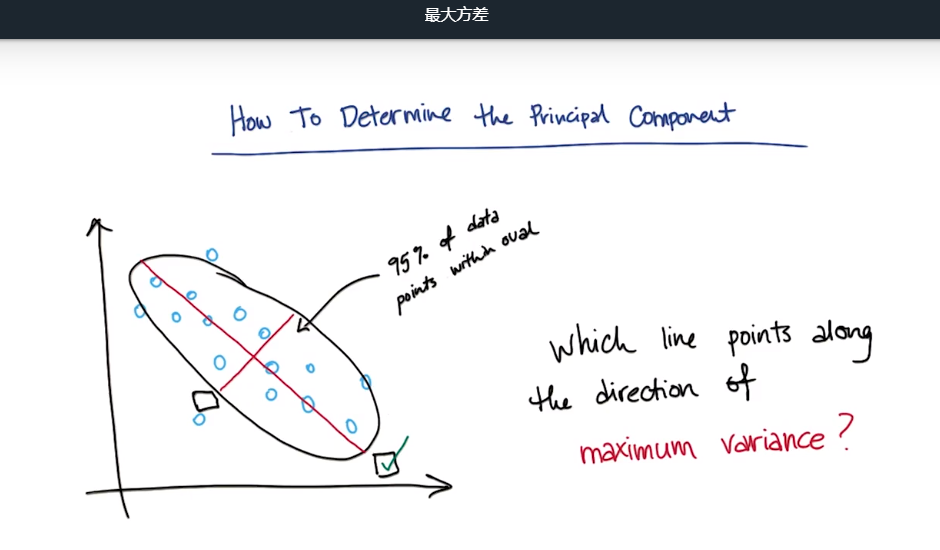 最大方差
How To Determine the Principal Component
95% of data
points within oval
Which line points along
the direction of
maximum variance?